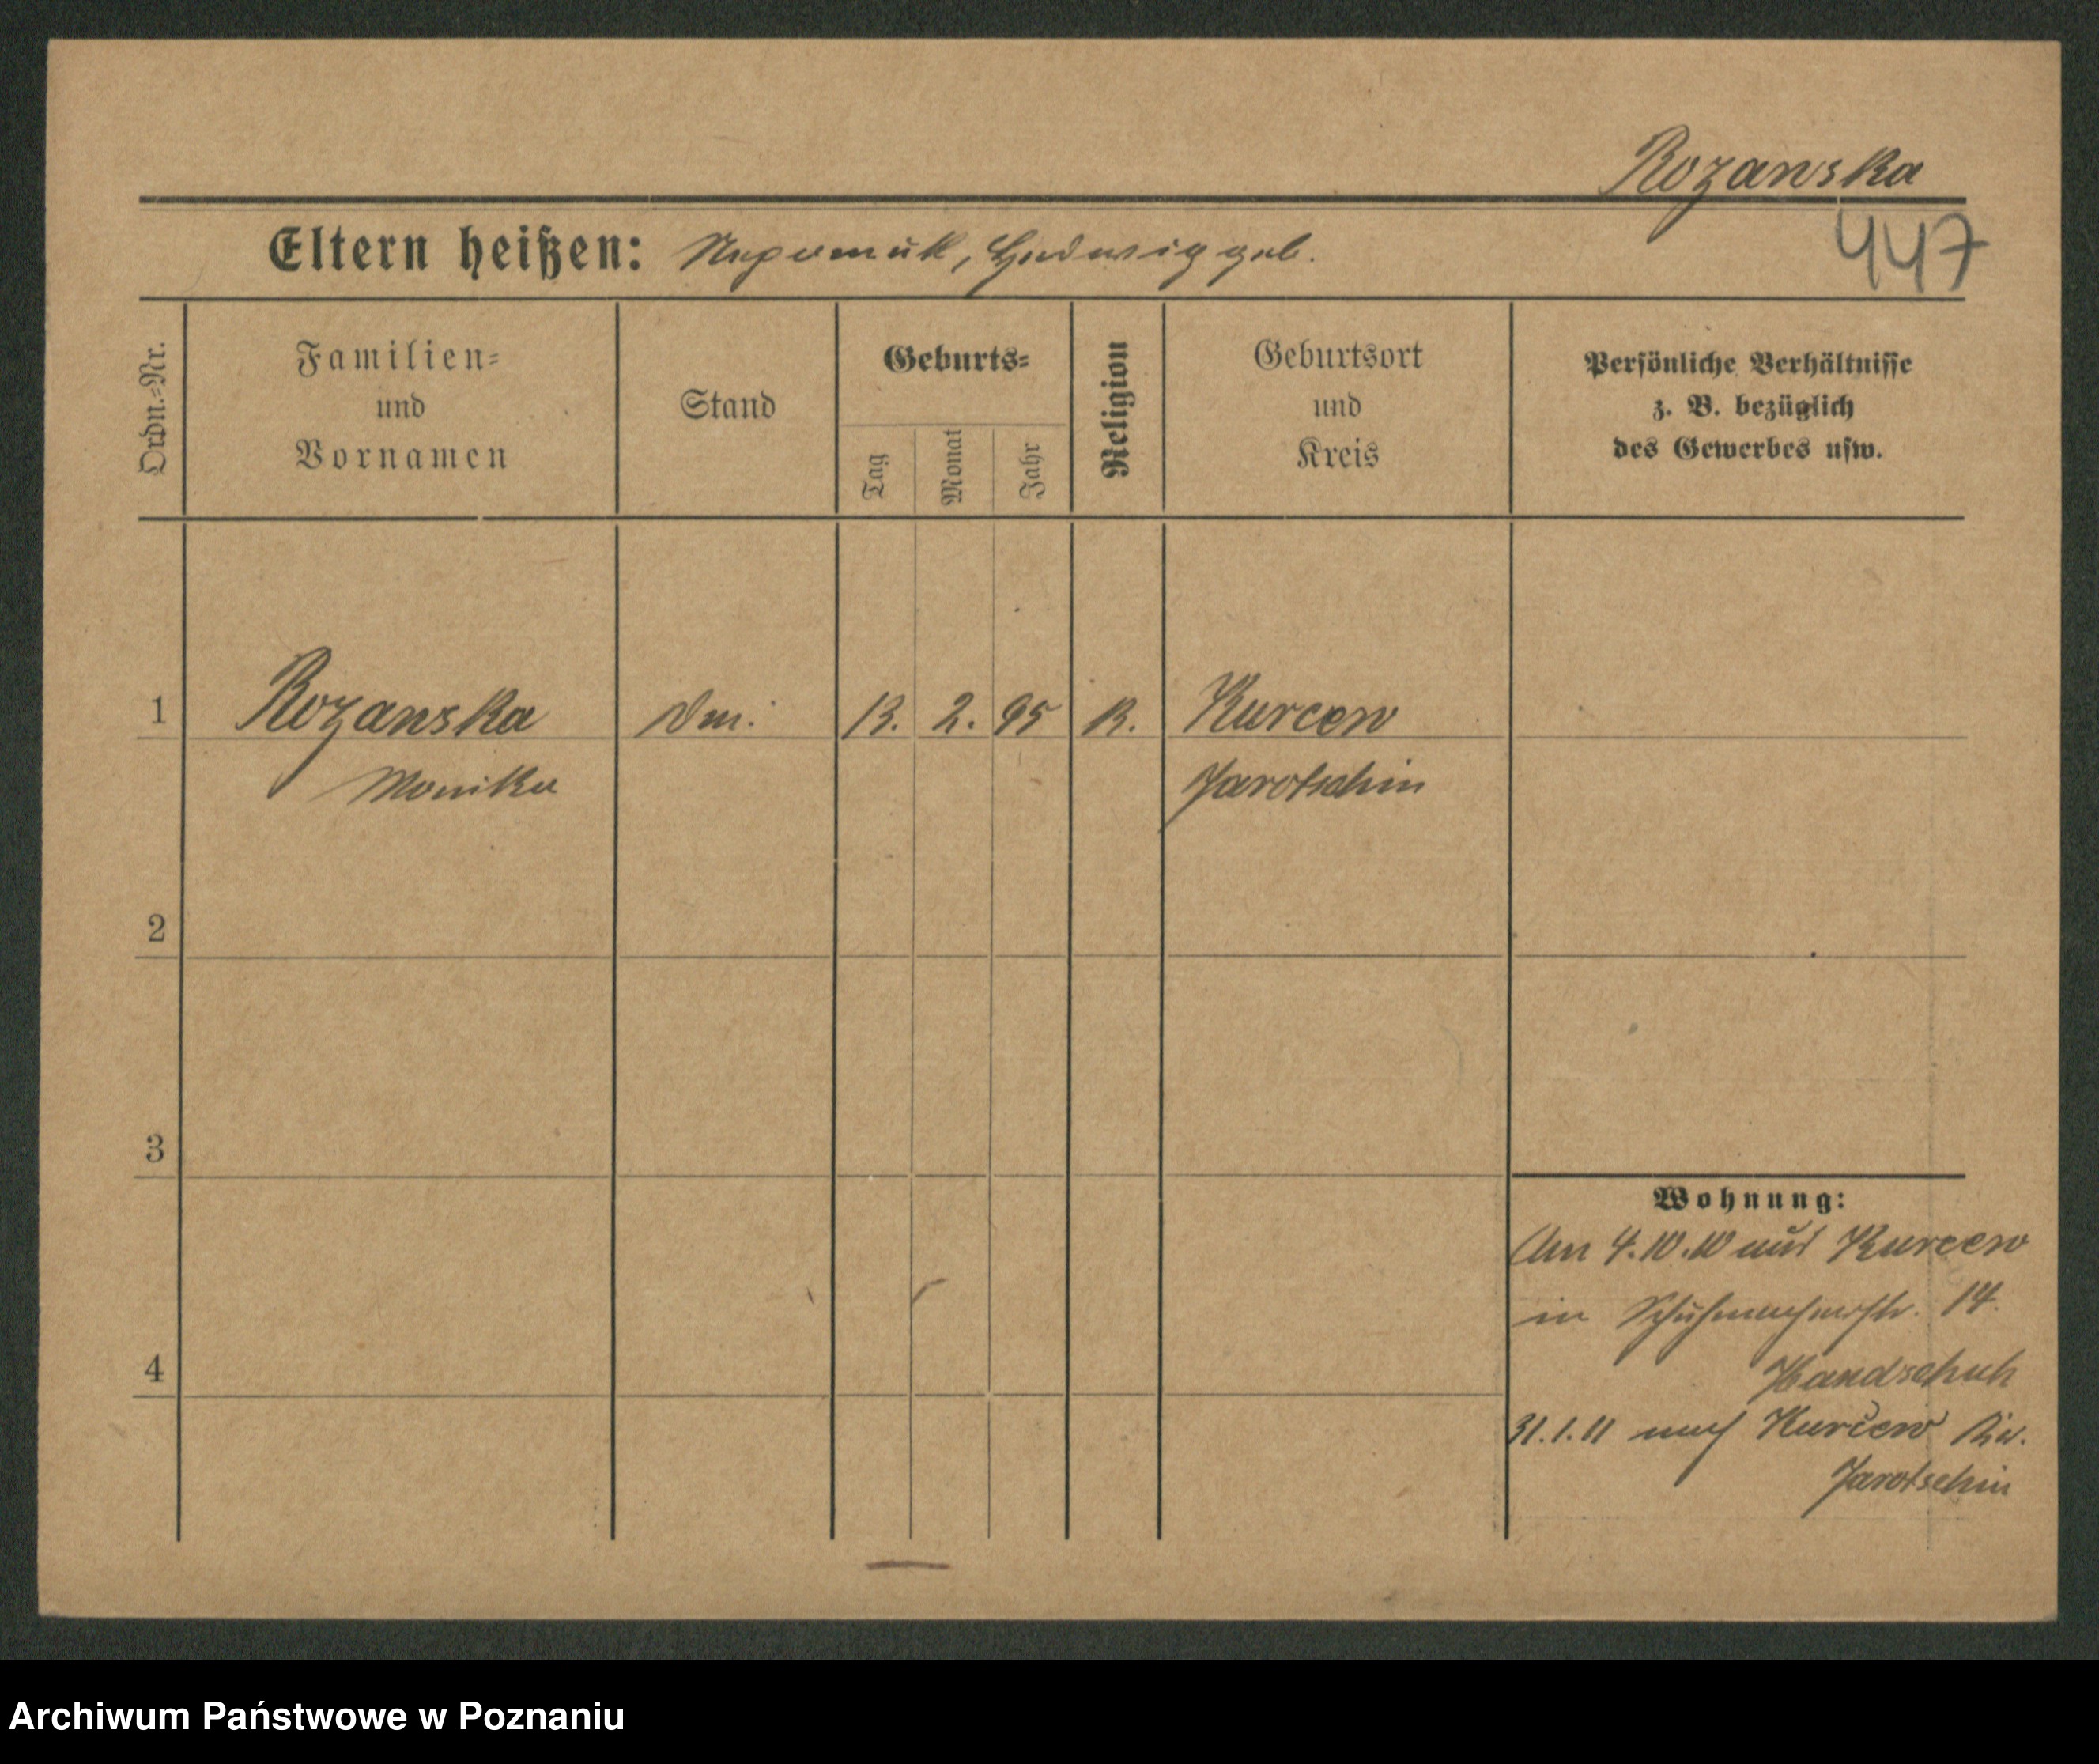 Rozanska
447
Eltern heißen: Nepomuk, Hedwig geb.
Ordn.=Nr.
Familien=
und
Vornamen
Stand
Geburts=
Tag
Monat
Jahr
Religion
Geburtsort
und
Kreis
Persönliche Verhältnisse
z. B. bezüglich
des Gewerbes usw.
1 Rozanska 13. 2. 95 K. Kurcew
Monika Jarotschin
2
3
4
Wohnung:
Am 4.10.10 aus Kurcew
in Schuhmacherstr. 14.
Handschuh
31.1.11 nach Kurcew
Jarotschin
Archiwum Państwowe w Poznaniu